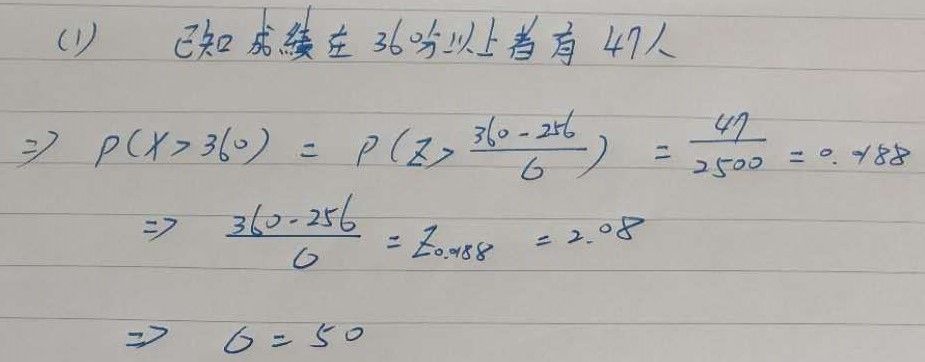 (1) 已知成績在360分以上者有47人
⇒ P(X>360) = P(Z> \frac{360-256}{σ}) = \frac{47}{2500} = 0.0188
⇒ \frac{360-256}{σ} = Z_{0.0188} = 2.08
⇒ σ = 50